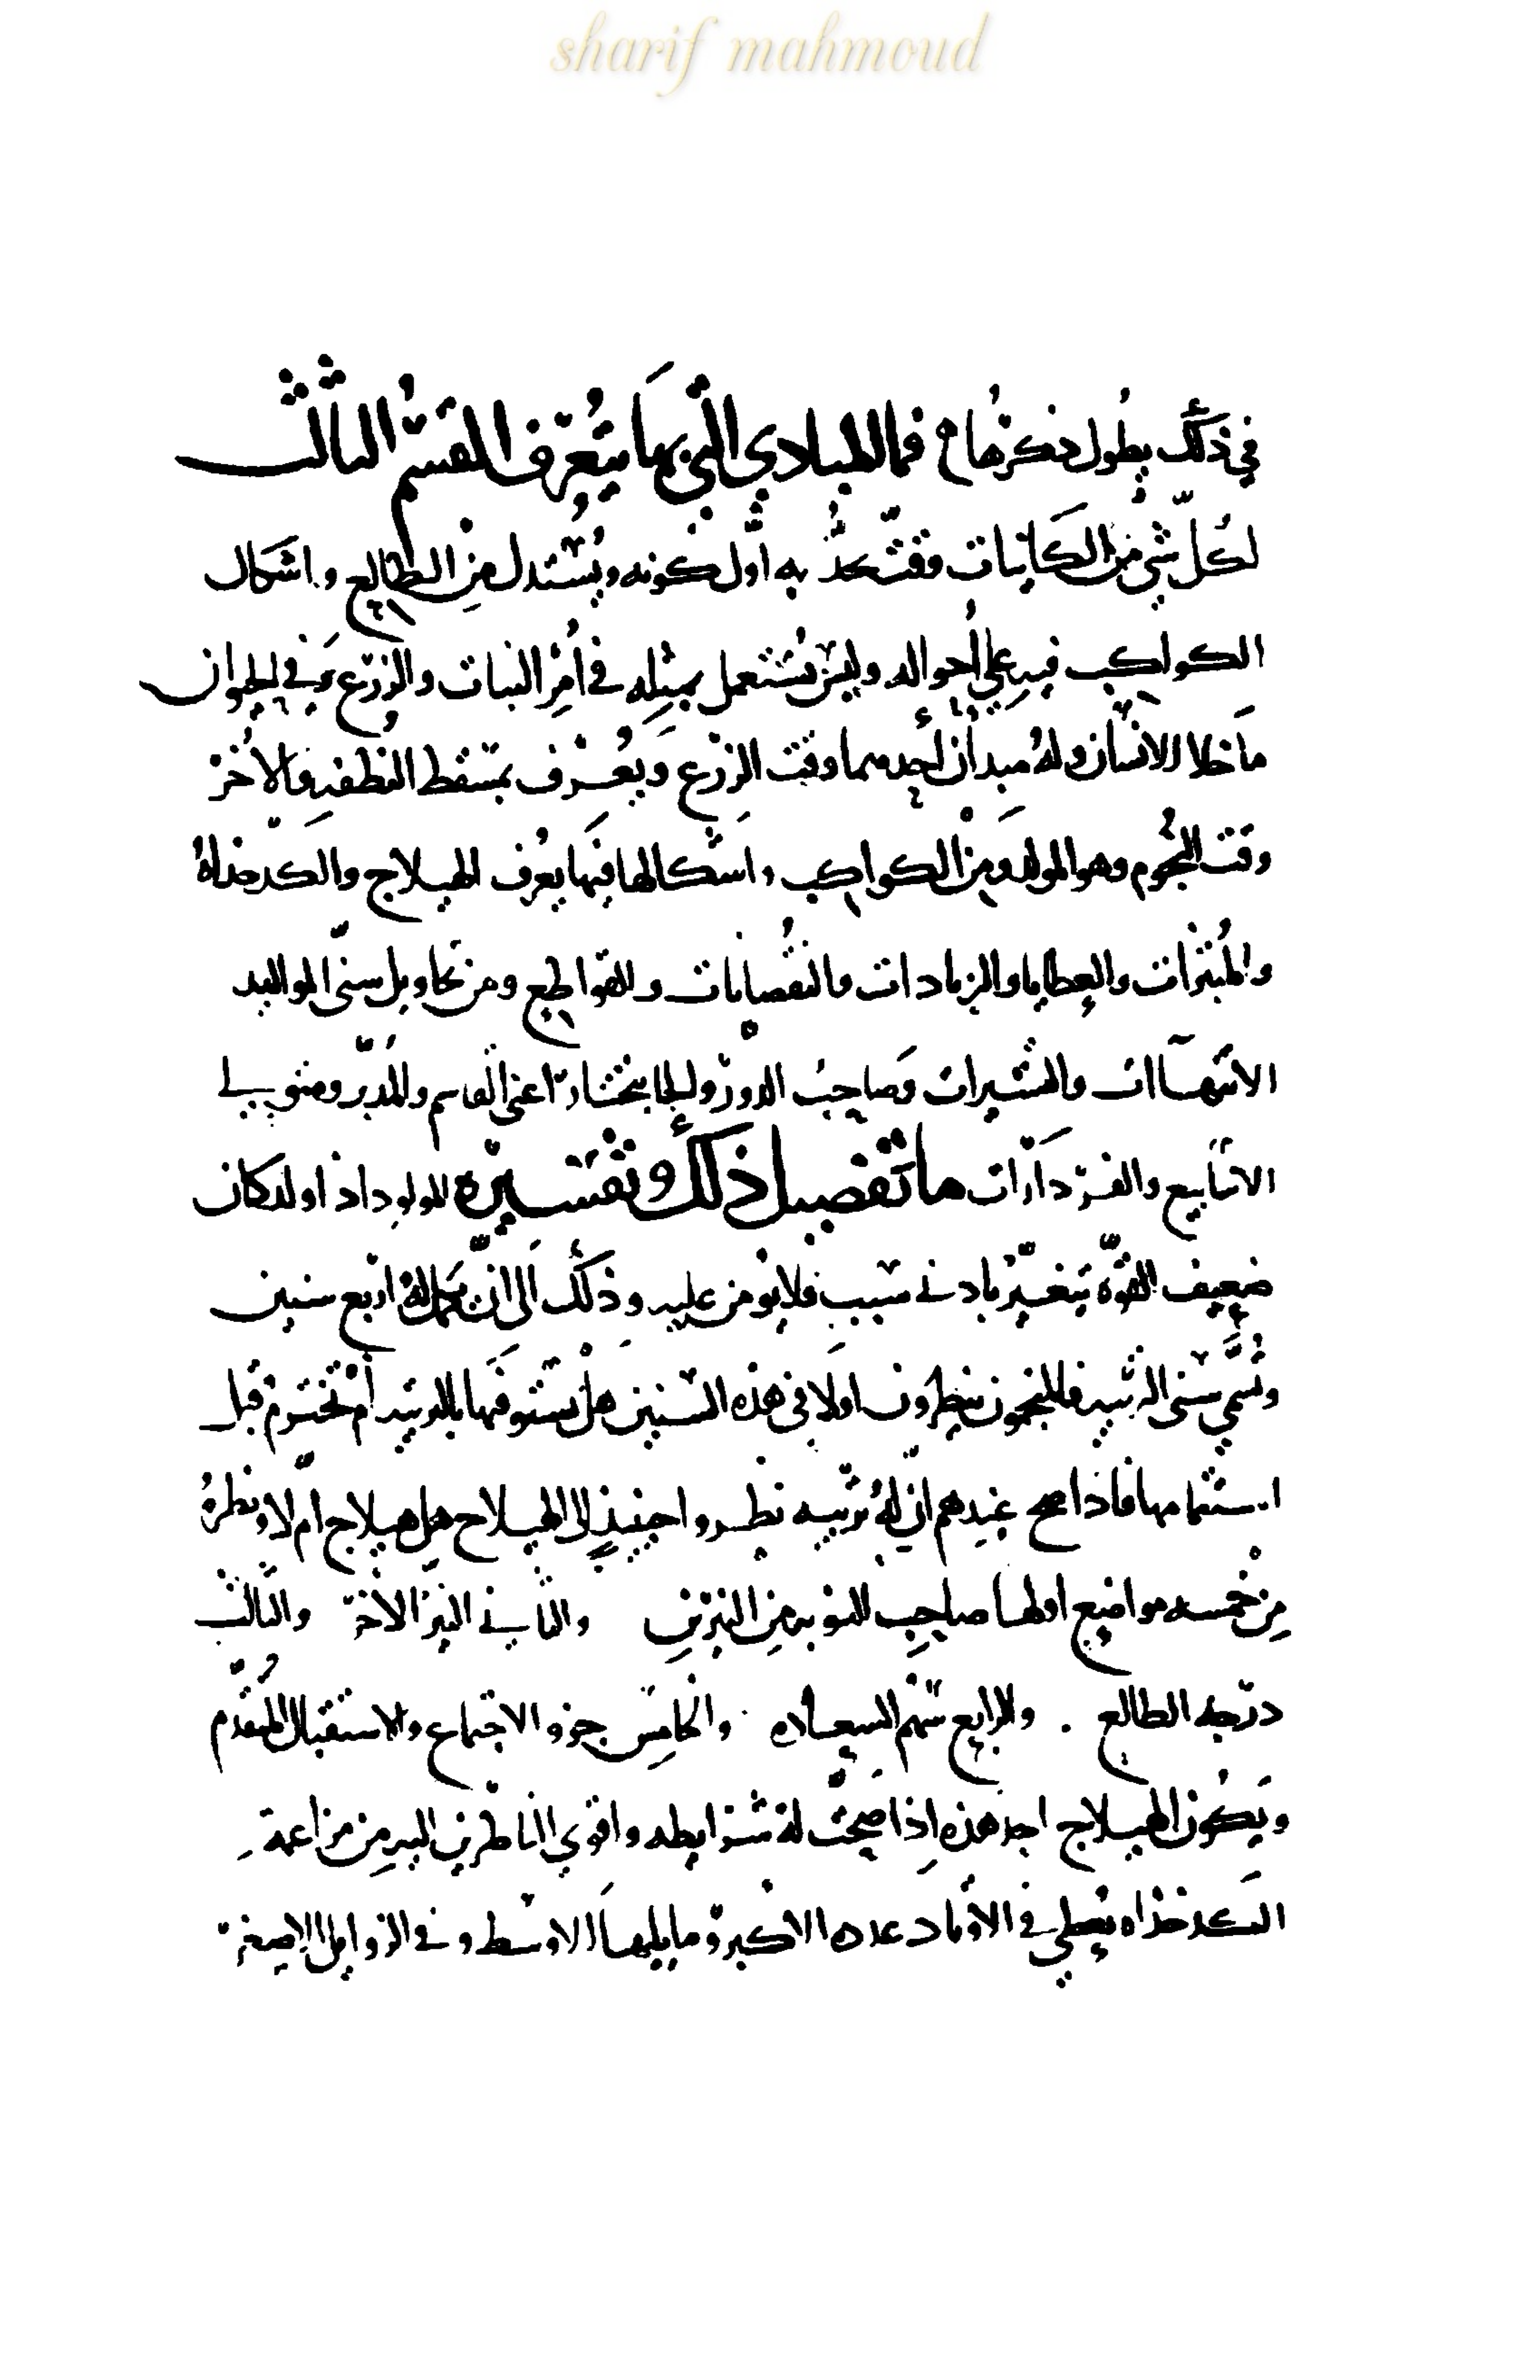 sharif mahmoud
في ذلك يطول ذكرها فما المبادي التي بها يتعرف القسم الثالث
لكل شي من الكاينات وقت يتحد به اول كونه ويستدل من الطالع واشكال
الكواكب فيه علي احواله وليس يستعمل بمثله في امر النبات والزرع وفي الحيوان
ما خلا الانسان وله مبدان احدهما وقت الزرع ويعرف بمسقط النطفه والاخر
وقت النجوم وهو المولد ومن الكواكب واشكالها فيها يعرف الهيلاج والكدخداه
والمبتزات والعطايا والزيادات والنقصانات والقواطع ومن تحاويل سني المواليد
الانتهاآت والتسييرات وصاحب الدور والجابختار اعني القاسم والمدبر ومتولي
الاسابيع والفردارات ما تفصيل ذلك وتفسيره المولود اذا ولد كان
ضعيف القوة يتغير بادني سبب فلا يومن عليه وذلك الى ان تكمل له اربع سنين
وتسمي سني التربيه فالمنجمون ينظرون اولا في هذه السنين هل يستوفيها بالتربيه ام تخترم قبل
استتمامها فاذا صح عندهم ان له تربيه نظروا حينيذ الى الهيلاج هل هيلاج ام لا ونظره
من خمسه مواضع اولها صاحب النوبه من النيرين والثاني النير الاخر والثالث
درجه الطالع . والرابع سهم السعاده والخامس جزو الاجتماع والاستقبال المتقدم
ويكون الهيلاج احد هذه اذا صحت له شرايطه واقوي الناظرين اليه من مزاعمة
الكدخداه يعطي في الاوتاد عدده الاكبر وما يليها الاوسط وفي الزوايل الاصغر